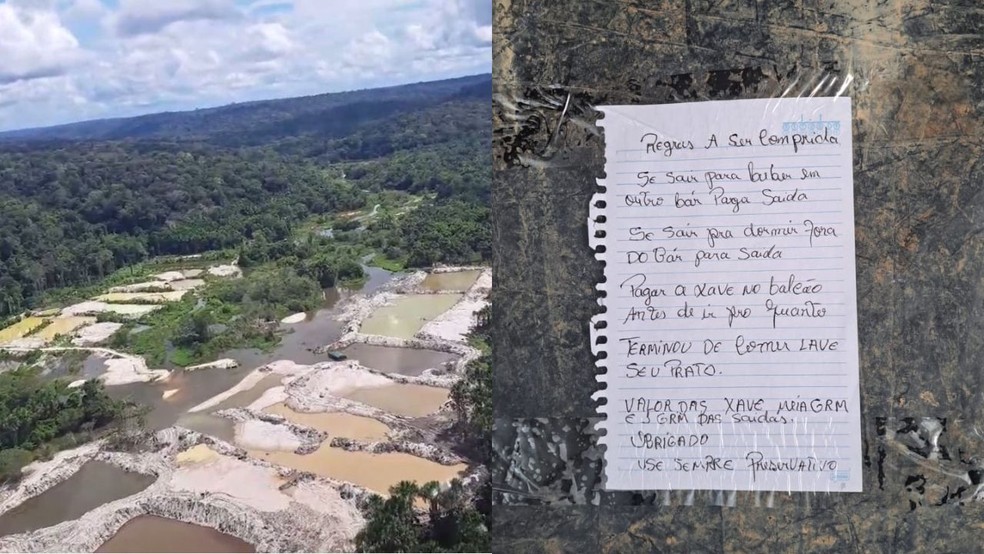 Regras A Ser Comprida
Se Sair para beber em
outro bár Parga Saida
Se Sair pra dormir Fora
DO Bár para Saida
Pagar a xave no balcão
Antes de ir pro quanto
TERMINOU DE Comer LAVE
SEU PRATO.
VALOR DAS XAVE MEIA GRM
E 3 GRM DAS SAIDAS.
OBRIGADO
USE SEMPRE PRESERVATIVO